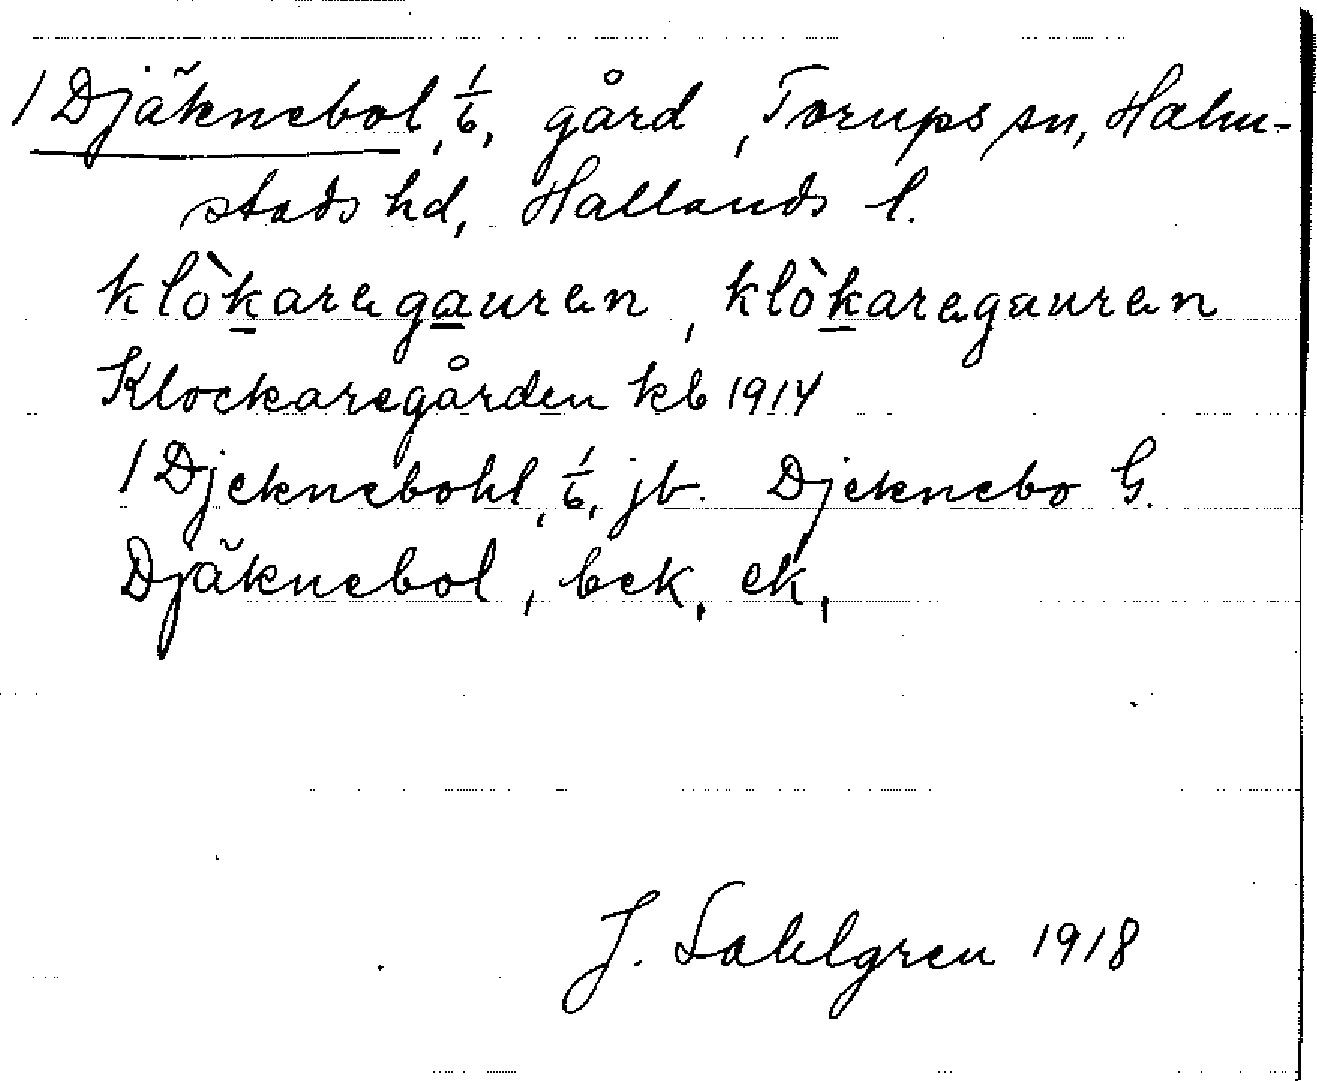 1 Djäknebol, 1/6, gård, Torups sn, Halm-
stads hd, Hallands l.
klòkaregauren, klòkaregauren
Klockaregården kb 1914
1 Djeknebohl, 1/6, jb. Djeknebo G.
Djäknebol, bek, ek,
J. Sahlgren 1918